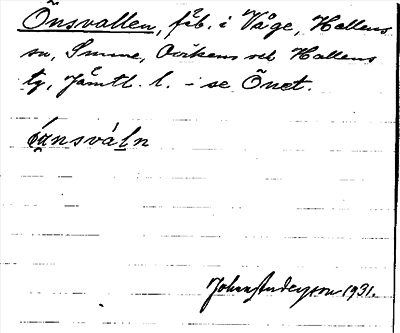 Önsvallen, fäb. i Våge, Hallens
sn, Sunne, Ovikens och Hallens
tg, Jämtl. l. – se Önet.
nsváln
Johan Anderson 1931.